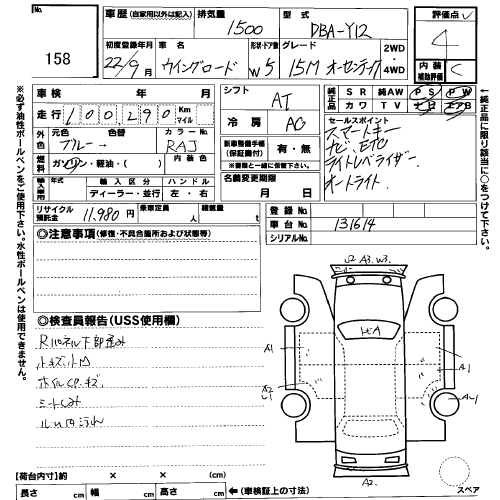 No.
158
車歴 (自家用以外は記入)
排気量
1500
型式
DBA-Y12
初度登録年月
22/9月
車名
ウイングロード
形状・ドア数
W5
グレード
15M オーセンティック
2WD
4WD
評価点
4
内装
補助評価
C
※必ず油性ボールペンをご使用下さい。水性ボールペンは使用できません。
※純正品に限り該当に○をつけて下さい。
車検 年 月
走行 100,290 Km マイル
外色
元色 色替
ブルー→
カラーNo.
RAJ
燃料
ガソリン・軽油・( )
内装色
輸入車用
年式
輸入区分
ディーラー・並行
ハンドル
左・右
リサイクル預託金
11,980円
乗車定員
人
積載量
t
シフト
AT
冷房
AC
新車整備手帳
(保証書付)
有・無
※書類と一緒に保管して下さい。
名義変更期限
月 日
純正品
SR 純AW PS PW
カワ TV ナビ エアB
セールスポイント
スマートキー
ナビ、ETC
ライトレベライザー
オートライト
登録No.
車台No.
131614
シリアルNo.
◎注意事項 (修復・不具合箇所および状態等)
◎検査員報告(USS使用欄)
Rパネル下部歪み
ホイルCP、キズ
シートしみ
ルーム内汚れ
S2 A3. W3.
HA
A1
A2
A1
A-1
A2.
スペア
【荷台内寸】約 × × (cm)
長さ cm 幅 cm 高さ cm ←(車検証上の寸法)